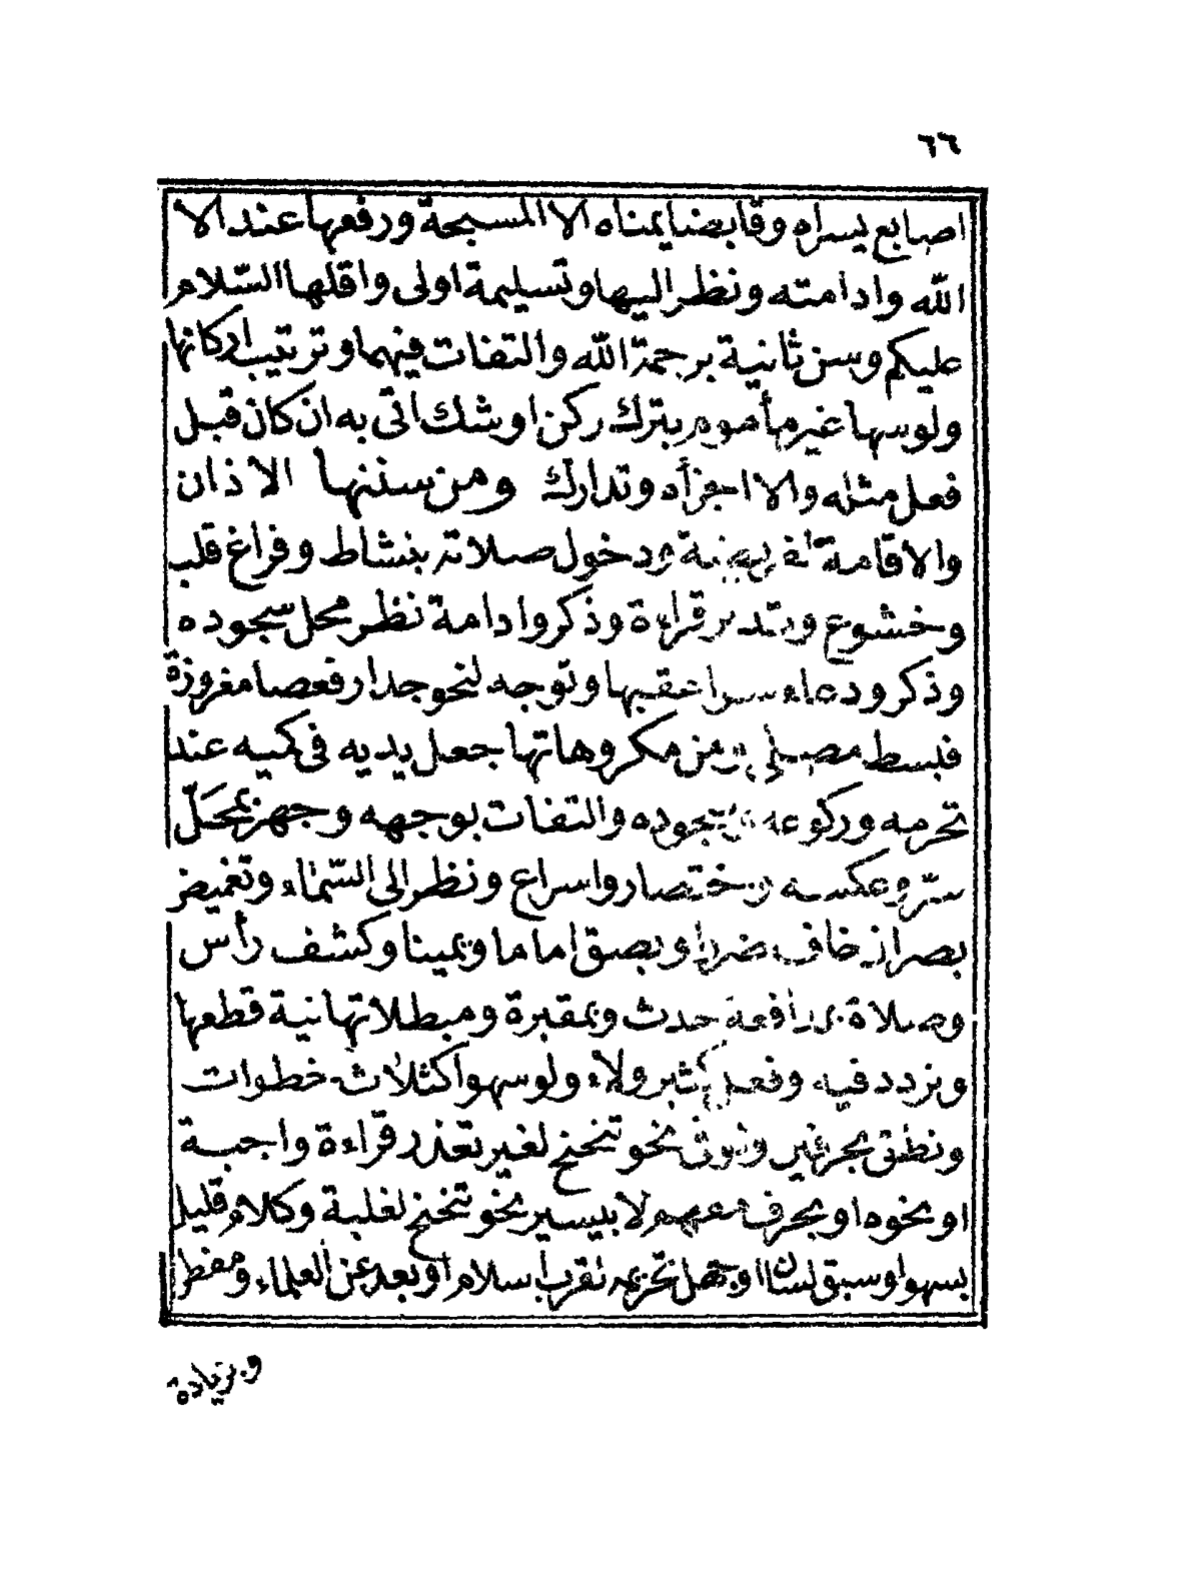 ٦٦
اصابع يسراه وقابضا يمناه الا المسبحة ورفعها عند الا
الله وادامته ونظر اليها وتسليمة اولى واقلها السّلام
عليكم وسن ثانية برحمة الله والتفات فيهما وترتيب اركانها
ولوسها غير مأموم بترك ركن او شك اتى به ان كان قبل
فعل مثله والا اجزأه وتدارك ومن سننها الاذان
والاقامة لفريضة ودخول صلاته بنشاط وفراغ قلب
وخشوع وتدبر قراءة وذكر وادامة نظر محل سجوده
وذكر ودعاء سرا عقبها وتوجه لنحو جدار فعصا مغروزة
فبسط مصلى ومن مكروهاتها جعل يديه فى كميه عند
تحرمه وركوعه وسجوده والتفات بوجهه وجهر بمحَلّ
سرّ وعكسه واختصار واسراع ونظر الى السّماء وتغميض
بصر ان خاف ضررا وبصق اماما ويمينا وكشف رأس
وصلاة بمدافعة حدث وبمقبرة ومبطلاتها نية قطعها
وتردد فيه وفعل كثير ولاء ولو سهوا كثلاث خطوات
ونطق بحرفين ولو فى نحو تنحنح لغير تعذر قراءة واجبة
او نحوه او بحرف مفهم لا بيسير نحو تنحنح لغلبة وكلام قليل
بسهو او سبق لسان او جهل تحريمه لقرب اسلام او بعد عن العلماء ومفطر
وبزيادة